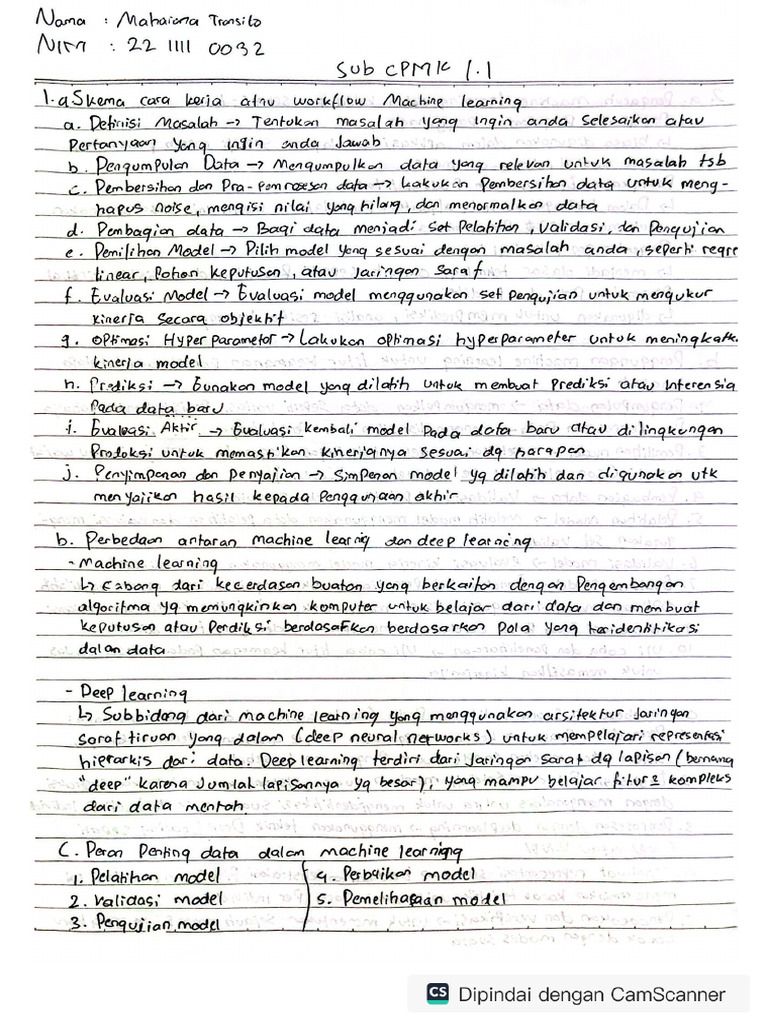 Nama : Mahaiana Transito
NIM : 22 1111 0032
Sub CPMK 1.1
1. a Skema cara kerja atau workflow Machine learning
a. Definisi Masalah → Tentukan masalah yang ingin anda selesaikan atau
Pertanyaan yang ingin anda Jawab
b. Pengumpulan Data → Mengumpulkan data yang relevan untuk masalah tsb
c. Pembersihan dan Pra-pemrosesan data → Lakukan Pembersihan data untuk meng-
hapus noise, mengisi nilai yang hilang, dan menormalkan data
d. Pembagian data → Bagi data menjadi set Pelatihan, validasi, dan Pengujian
e. Pemilihan Model → Pilih model yang sesuai dengan masalah anda, seperti regre
linear, Pohon keputusan, atau Jaringan Saraf
f. Evaluasi Model → Evaluasi model menggunakan set Pengujian untuk mengukur
kinerja Secara objektif
g. OPtimasi Hyper Parametor → Lakukan optimasi hyperparameter untuk meningkatk.
kinerja model
h. Prediksi → Gunakan model yang dilatih untuk membuat Prediksi atau Interensia
Pada data baru
i. Evaluasi Akhir → Evaluasi kembali model Pada data baru atau di lingkungan
Produksi untuk memastikan kinerjanya sesuai dg harapan
j. Penyimpanan dan Penyajian → Simpanan model yg dilatih dan digunakan utk
menyajikan hasil kepada Penggunaan akhir
b. Perbedaan antaran machine learnig dan deep learning
- Machine learning
↳ Cabang dari kecerdasan buatan yang berkaitan dengan Pengembangan
algoritma yg memungkinkan komputer untuk belajar dari data dan membuat
keputusan atau Perdiksi berdasarkan berdasarkan Pola yang teridentifikasi
dalam data
- Deep learning
↳ Subbidang dari machine learning yang menggunakan arsitektur Jaringan
saraf tiruan yang dalam (deep neural networks) untuk mempelajari representasi
hierarkis dari data. Deep learning terdiri dari Jaringan Saraf dg lapisan (bernama
"deep" karena Jumlah lapisannya yg besar), yang mampu belajar fitur2 kompleks
dari data mentah.
C. Peran Penting data dalam machine learning
1. Pelatihan model
2. validasi model
3. Pengujian model
4. Perbaikan model
5. Pemeliharaan model
CS Dipindai dengan CamScanner